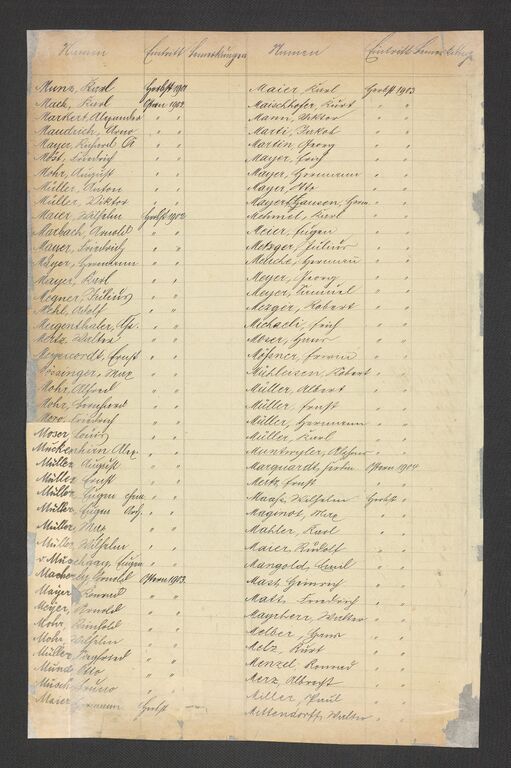 Namen Eintritt Bemerkungen
Munz, Karl Herbst 1901
Mach, Karl Ostern 1902
Markert, Alexander " "
Maudrich, Arno " "
Mayer, Richard A " "
Most, Friedrich " "
Mohr, August " "
Müller, Anton " "
Müller, Viktor " "
Maier, Wilhelm Herbst 1902
Marbach, Arnold " "
Mayer, Friedrich " "
Mayer, Hermann " "
Mayer, Karl " "
Megner, Julius " "
Mehl, Adolf " "
Meigenthaler, " "
Metz, Walter " "
Meyerordt, Ernst " "
Mössinger, Max " "
Mohr, Alfred " "
Mohr, Bernhard " "
Moro, Friedrich " "
Moser, Louis " "
Muckenhirn, Alex. " "
Müller, August " "
Müller, Ernst " "
Müller, Eugen " "
Müller, Eugen " "
Müller, Max " "
Müller, Wilhelm " "
v. Muschgay, Eugen " "
Arnold Ostern 1903
Mayer, Konrad " "
Meyer, Arnold " "
Mohr, Reinhold " "
Mohr, Wilhelm " "
Müller, Siegfried " "
Mündt, Otto " "
Musch, Bruno " "
Maier, Hermann Herbst
Namen Eintritt Bemerkung
Maier, Karl Herbst 1903
Maischhofer, Kurt " "
Mann, Viktor " "
Marti, Jakob " "
Martin, Georg " "
Mayer, Erich " "
Mayer, Hermann " "
Mayer, Otto " "
Mayerthausen, Herm " "
Mehmel, Karl " "
Meier, Eugen " "
Metzger, Julius " "
Hermann " "
Meyer, Georg " "
Meyer, Samuel " "
Mezger, Robert " "
Michaeli, Erich " "
Moser, Hans " "
Mössner, Erwin " "
Mühleisen, Robert " "
Müller, Albert " "
Müller, Ernst " "
Müller, Hermann " "
Müller, Karl " "
" "
Marquardt, Ostern 1904
Metz, Ernst " "
Maass, Wilhelm Herbst "
Maginot, Max " "
Mahler, Karl " "
Maier, Rudolf " "
Mangold, Emil " "
Mast, Heinrich " "
Matt, Friedrich " "
Mayrherr, Walter " "
Melber, Hans " "
Melz, Kurt " "
Menzel, Konrad " "
Merz, Albrecht " "
Miller, Paul " "
Mittendorff, Walter " "